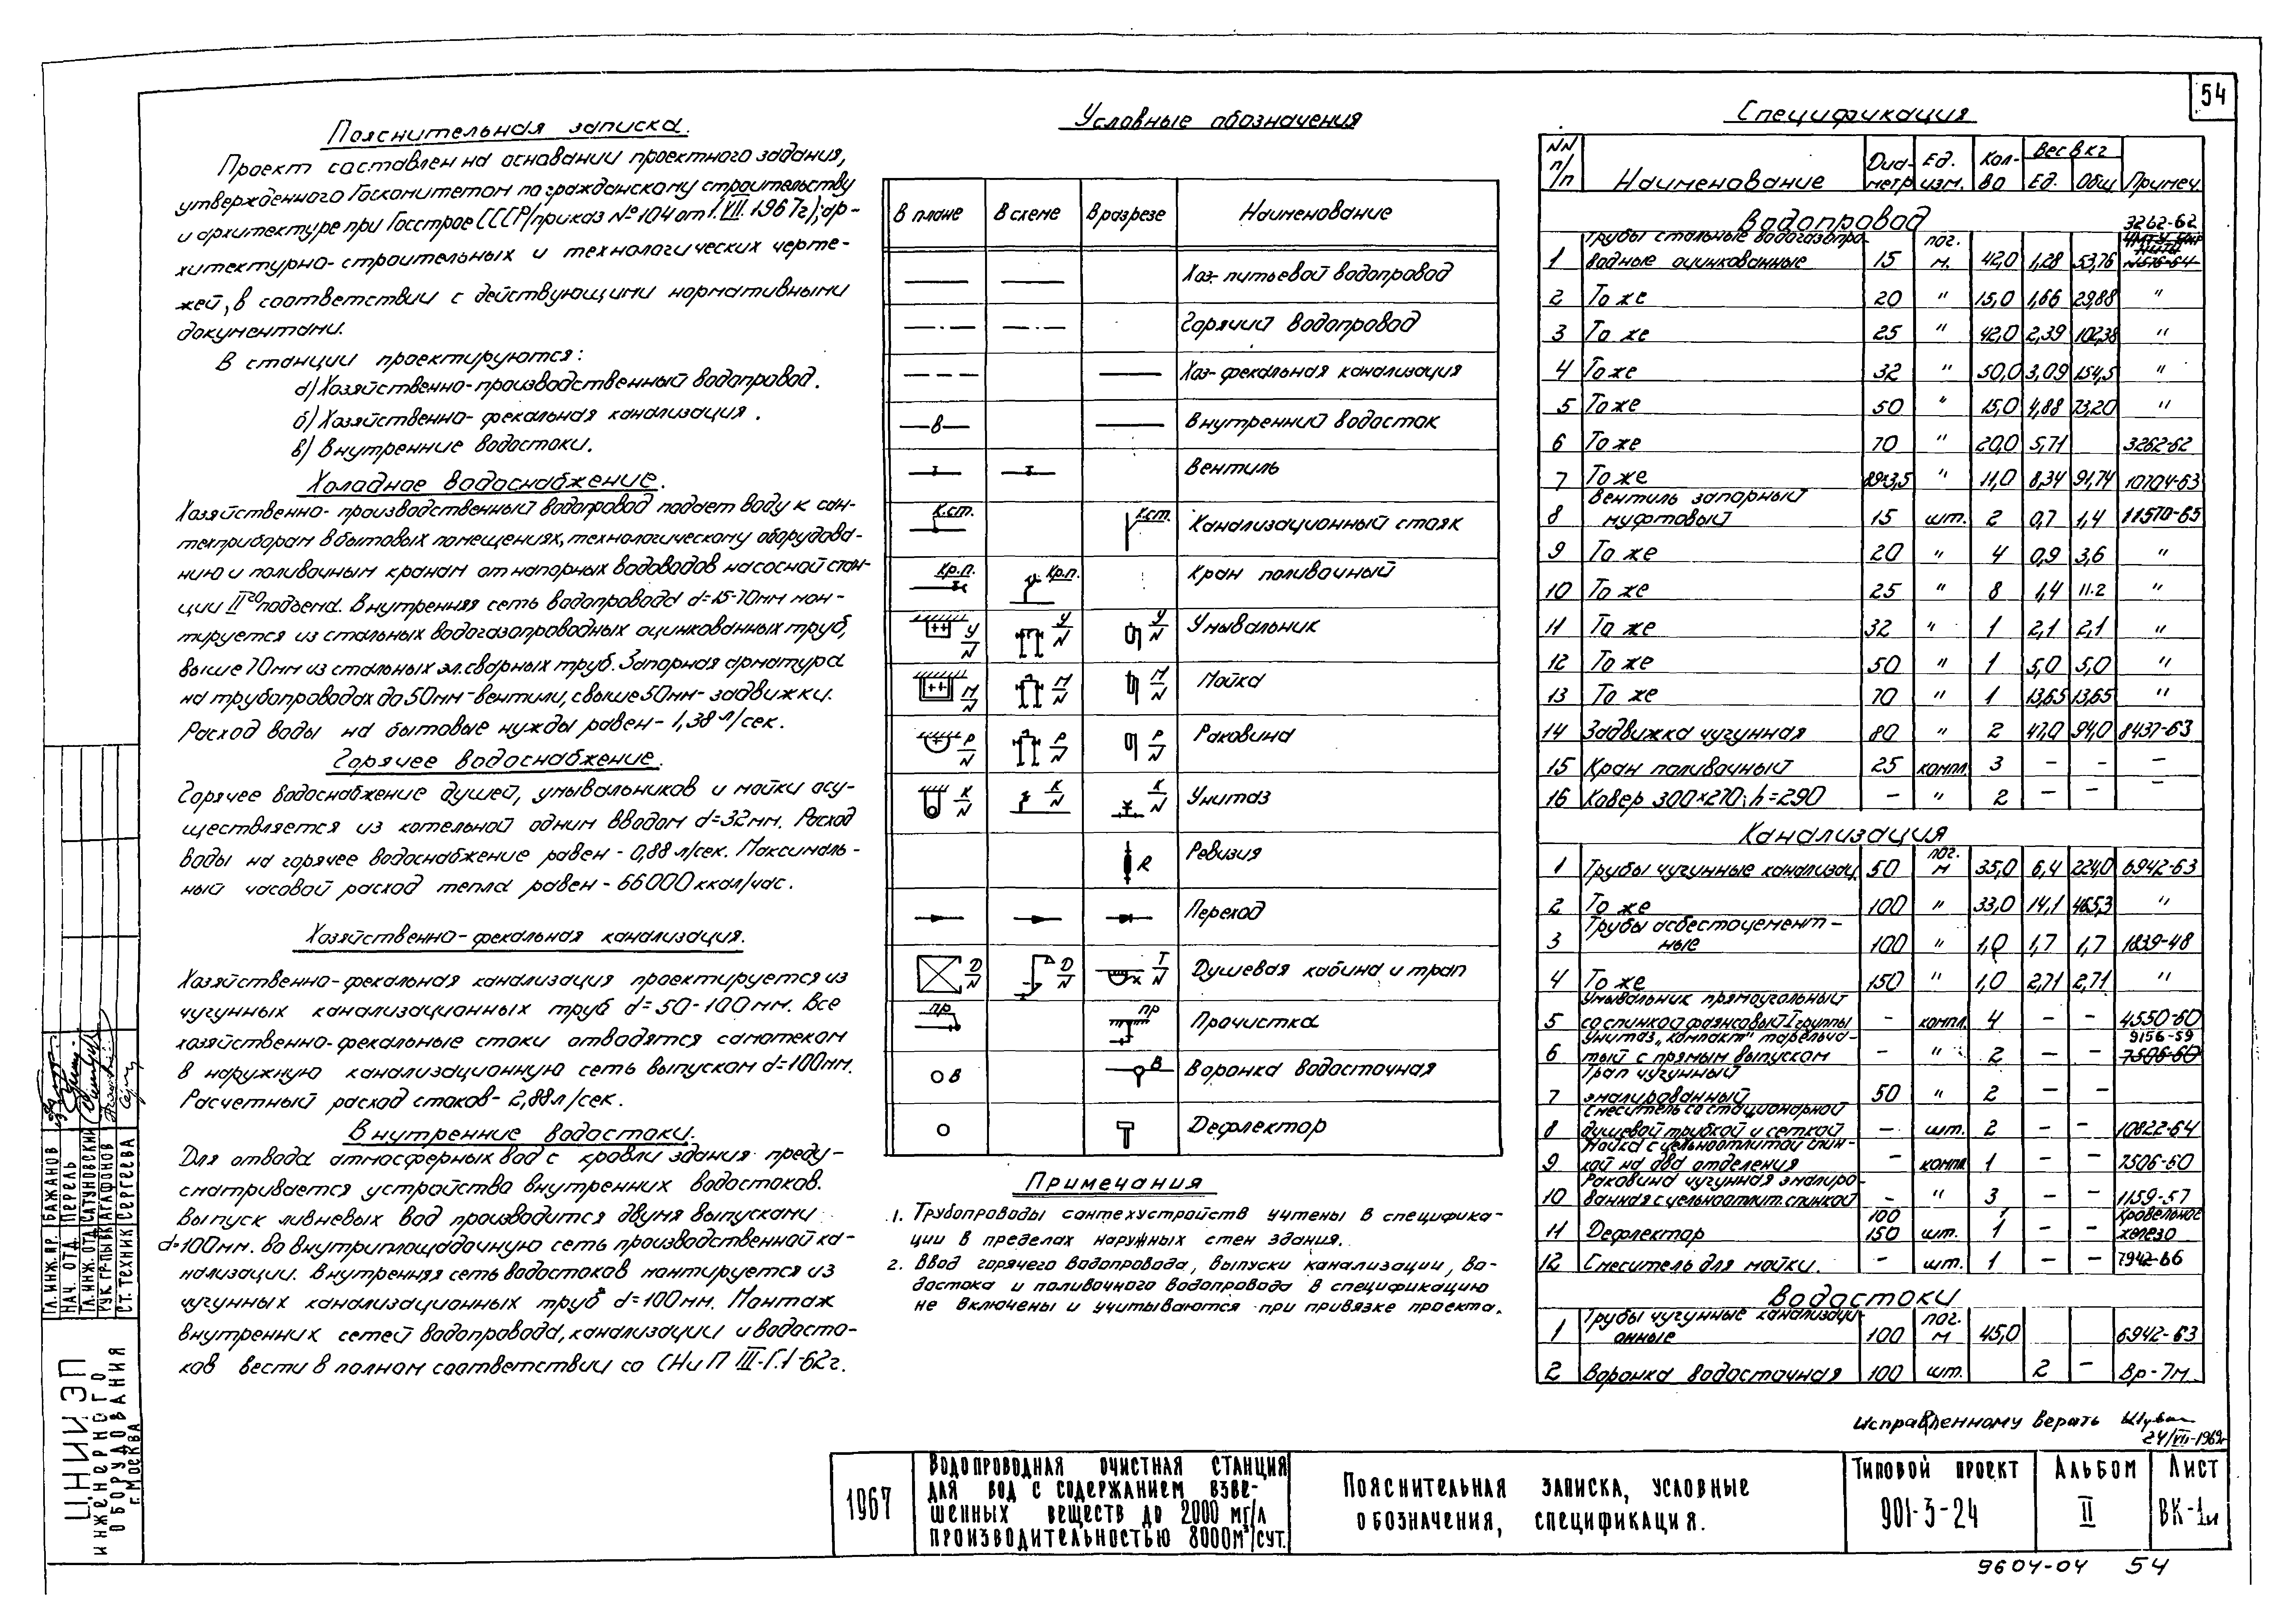 54
Пояснительная записка.
Проект составлен на основании проектного задания,
утвержденного Госкомитетом по гражданскому строительству
и архитектуре при Госстрое СССР/приказ № 104 от 1.VII.1967г); ар-
хитектурно-строительных и технологических черте-
жей, в соответствии с действующими нормативными
документами.
В станции проектируются:
а) Хозяйственно-производственный водопровод.
б) Хозяйственно-фекальная канализация.
в) Внутренние водостоки.
Холодное водоснабжение.
Хозяйственно-производственный водопровод подает воду к сан-
техприборам в бытовых помещениях, технологическому оборудова-
нию и поливочным кранам от напорных водоводов насосной стан-
ции II го подъема. Внутренняя сеть водопровода d=15-70мм мон-
тируется из стальных водогазопроводных оцинкованных труб,
выше 70мм из стальных эл.сварных труб. Запорная арматура
на трубопроводах до 50мм-вентили, свыше 50мм-задвижки.
Расход воды на бытовые нужды равен-1,38 л/сек.
Горячее водоснабжение.
Горячее водоснабжение душей, умывальников и мойки осу-
ществляется из котельной одним вводом d=32мм. Расход
воды на горячее водоснабжение равен-0,88 л/сек. Максималь-
ный часовой расход тепла равен-66000 ккал/час.
Хозяйственно-фекальная канализация.
Хозяйственно-фекальная канализация проектируется из
чугунных канализационных труб d=50-100мм. Все
хозяйственно-фекальные стоки отводятся самотеком
в наружную канализационную сеть выпуском d=100мм.
Расчетный расход стоков-2,88л/сек.
Внутренние водостоки.
Для отвода атмосферных вод с кровли здания преду-
сматривается устройства внутренних водостоков.
Выпуск ливневых вод производится двумя выпусками
d=100мм. во внутриплощадочную сеть производственной ка-
нализации. Внутренняя сеть водостоков монтируется из
чугунных канализационных труб d=100мм. Монтаж
внутренних сетей водопровода, канализации и водосто-
ков вести в полном соответствии со СНиП III-Г.1-62г.
Условные обозначения
В плане В схеме В разрезе Наименование
Хоз-питьевой водопровод
Горячий водопровод
Хоз-фекальная канализация
В Внутренний водосток
Вентиль
К.ст. К.ст. Канализационный стояк
Кр.п. Кр.п. Кран поливочный
У/N У/N У/N Умывальник
М/N М/N М/N Мойка
Р/N Р/N Р/N Раковина
К/N К/N К/N Унитаз
R Ревизия
Переход
Д/N Д/N Т/N Душевая кабина и трап
пр пр Прочистка
В В Воронка водосточная
Дефлектор
Примечания
1. Трубопроводы сантехустройств учтены в специфика-
ции в пределах наружных стен здания.
2. Ввод горячего водопровода, выпуски канализации, во-
достока и поливочного водопровода в спецификацию
не включены и учитываются при привязке проекта.
Спецификация
NN п/п Наименование Диа-метр Ед. изм. Кол-во Вес в кг Ед. Общ Примеч
Водопровод 3262-62
1 Трубы стальные водогазопро-
водные оцинкованные 15 пог. м. 42,0 1,28 53,76
2 То же 20 " 15,0 1,66 29,88 "
3 То же 25 " 42,0 2,39 102,38 "
4 То же 32 " 50,0 3,09 154,5 "
5 То же 50 " 15,0 4,88 73,20 "
6 То же 70 " 20,0 5,71 3262-62
7 То же 89×3,5 " 11,0 8,34 91,74 10704-63
8 Вентиль запорный
муфтовый 15 шт. 2 0,7 1,4 11570-65
9 То же 20 " 4 0,9 3,6 "
10 То же 25 " 8 1,4 11.2 "
11 То же 32 " 1 2,1 2,1 "
12 То же 50 " 1 5,0 5,0 "
13 То же 70 " 1 13,65 13,65 "
14 Задвижка чугунная 80 " 2 47,0 94,0 8437-63
15 Кран поливочный 25 компл. 3 - - -
16 Ковер 300×270; h=290 - " 2 - - -
Канализация
1 Трубы чугунные канализац. 50 пог. м 35,0 6,4 224,0 6942-63
2 То же 100 " 33,0 14,1 465,3 "
3 Трубы асбестоцемент-
ные 100 " 1,0 1,7 1,7 1839-48
4 То же 150 " 1,0 2,71 2,71 "
5 Умывальник прямоугольный
со спинкой фаянсовый I группы - компл. 4 - - 4550-60
6 Унитаз „компакт" тарельча-
тый с прямым выпуском - " 2 - - 9156-59 7506-60
7 Трап чугунный
эмалированный 50 " 2 - -
8 Смеситель со стационарной
душевой трубкой и сеткой - шт. 2 - - 10822-64
9 Мойка с цельноотлитой спин-
кой на два отделения - компл 1 - - 7506-60
10 Раковина чугунная эмалиро-
ванная с цельноотлит. спинкой - " 3 - - 1159-57
11 Дефлектор 100 150 шт. 1 - - кровельное железо
12 Смеситель для мойки. - шт. 1 - - 7942-66
Водостоки
1 Трубы чугунные канализаци-
онные 100 пог. м 45,0 6942-63
2 Воронка водосточная 100 шт. 2 - Вр-7м
Исправленному верить
24/VII-1969г
ЦНИИЭП
инженерного
оборудования
г. Москва
Гл.инж.пр. Бажанов
Нач. отд. Перель
Гл.инж.отд. Сатуновский
Рук. гр-пы вк Агафонов
Ст. техник Сергеева
1967
Водопроводная очистная станция
для вод с содержанием взве-
шенных веществ до 2000 мг/л
производительностью 8000м³/сут.
Пояснительная записка, условные
обозначения, спецификация.
Типовой проект
901-3-24
Альбом
II
Лист
ВК-1и
9604-04 54